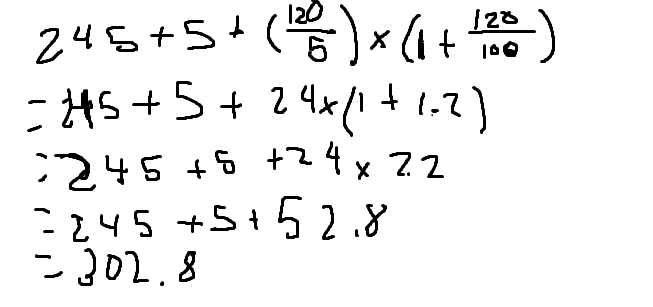 245+5+(120/5)×(1+120/100)
=245+5+24×(1+1.2)
=245+5+24×2.2
=245+5+52.8
=302.8